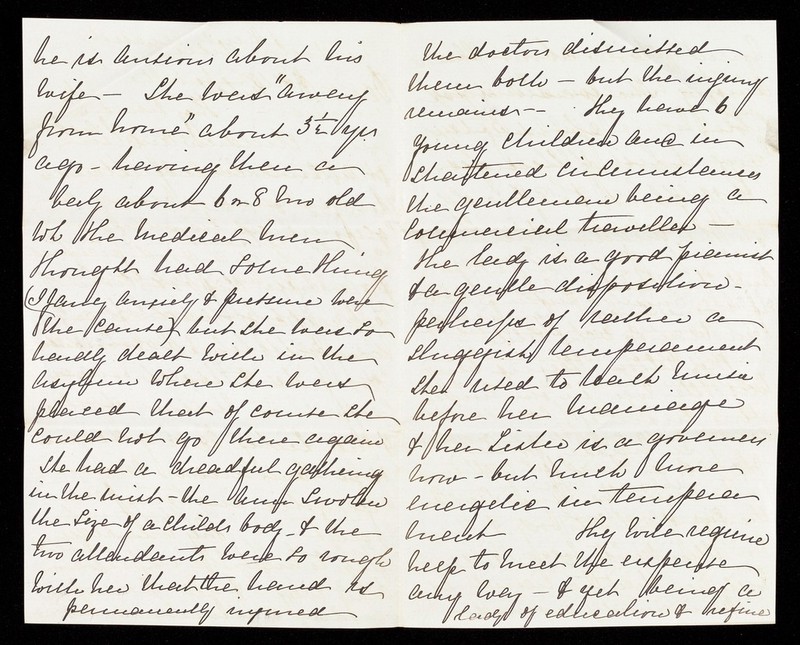 he is anxious about his
wife – She was "away
from home" about 3½ yrs
ago – having then a
baby about 6 or 8 mo old
wh the medical men
thought had something
(I fancy anxiety & pressure were
the cause) but she was so
hardly dealt with in the
asylum where she was
placed that of course she
could not go there again
She had a dreadful gathering
in the wrist – the arm swollen
the size of a childs body – & the
two attendants were so rough
with her that the hand is
permanently injured
the doctors dismissed
them both – but the injury
remains – They have 6
young children and in
straitened circumstances
the gentleman being a
commercial traveller –
The lady is a good pianist
& a gentle disposition –
perhaps of rather a
sluggish temperament
She used to teach music
before her marriage
& her Sister is a governess
now – but much more
energetic in tempera
ment They will require
help to meet the expense
any way – & yet being a
lady of education & refine